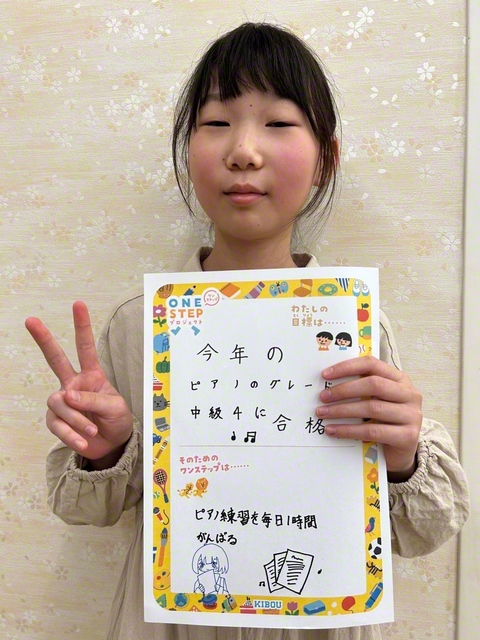 ONE
STEP
プロジェクト
わたしの
目標は……
今年の
ピアノのグレード
中級4に合格
そのための
ワンステップは……
ピアノ練習を毎日1時間
がんばる
KIBOU